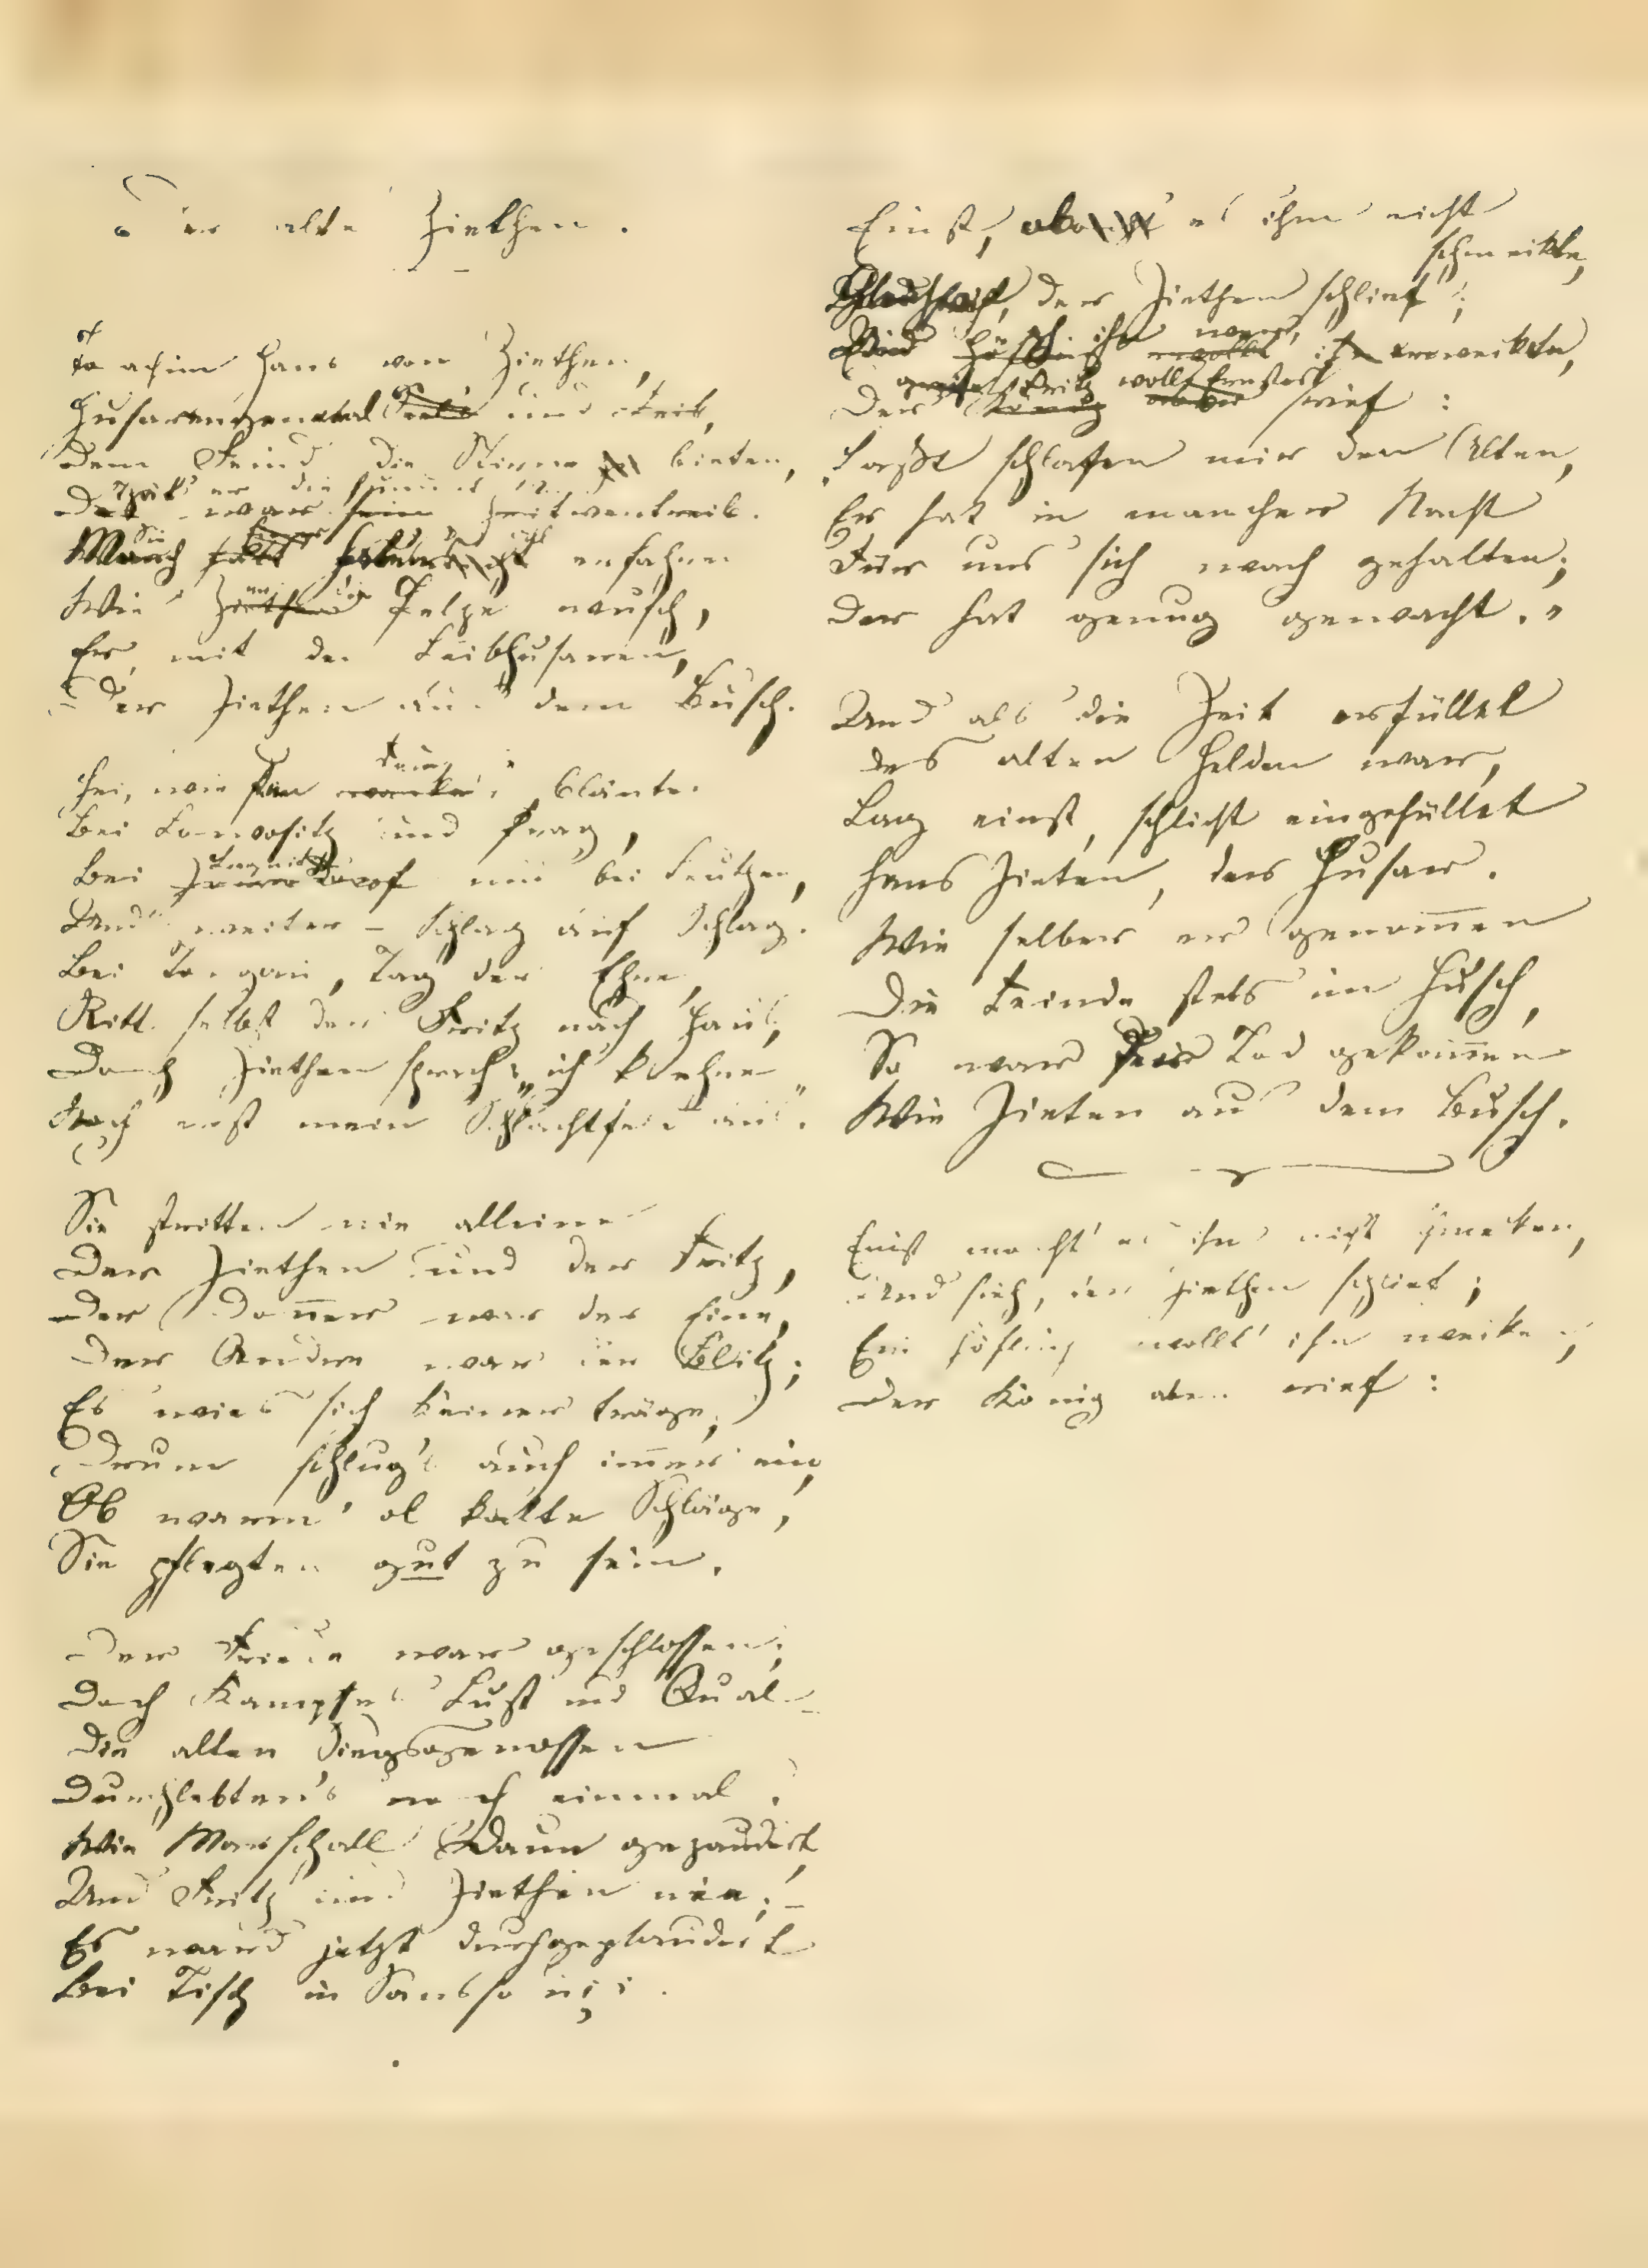 Der alte Ziethen.
Joachim Hans von Ziethen,
Husarengeneral
Dem Feind die Stirne bieten,
Er die
war sein Zeitvertreib.
Sie erfahren
Wie Ziethen Pelze wusch,
Er, mit den Leibhusaren,
Der Ziethen aus dem Busch.
Hei, wie den Feind bläute
Bei Lowositz und Prag,
Bei Liegnitz und bei Leuthen,
Und weiter – Schlag auf Schlag.
Bei Torgau, Tag der Ehre,
Ritt selbst der Fritz nach Haus,
Doch Ziethen sprach: „ich kehre
Noch erst mein Schlachtfeld aus".
Sie stritten nie alleine
Der Ziethen und der Fritz,
Der Donner war der Eine,
Der Andre war der Blitz;
Es wies sich keiner träge,
Drum schlug's auch immer ein,
Ob warm', ob kalte Schläge,
Sie pflegten gut zu sein.
Der Friede war geschlossen;
Doch Kampfes Lust und Qual
Die alten Siegsgenossen
Durchlebten's noch einmal.
Wie Marschall Daun gezaudert,
Und Fritz und Ziethen nie; –
Es ward jetzt durchgeplaudert
Bei Tisch in Sanssouci.
Einst, es ihm nicht
schmeckte,
der Ziethen schlief;
ihn erweckte,
Der Fritz rief:
„Laßt schlafen mir den Alten,
Er hat in mancher Nacht
Für uns sich wach gehalten;
Der hat genug gewacht."
Und als die Zeit erfüllet
des alten Helden war,
Lag einst, schlicht eingehüllet
Hans Zieten, der Husar.
Wie selber er genom̅en
Die Feinde stets im Husch,
So war der Tod gekom̅en
Wie Zieten aus dem Busch.
Einst mocht' es ihm nicht schmecken,
Und sieh, der Ziethen schlief;
Ein Höfling wollt' ihn wecken,
Der König aber rief: